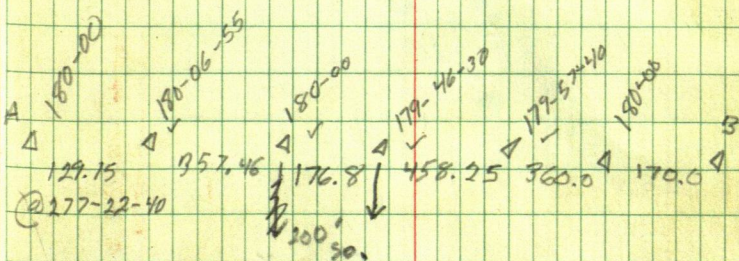 180-00 180-06-55 180-00 179-46-30 179-57-40 180-00
A Δ Δ Δ Δ Δ Δ Δ B
129.15 357.46 176.8 458.25 360.0 170.0
@277-22-40
200' So.